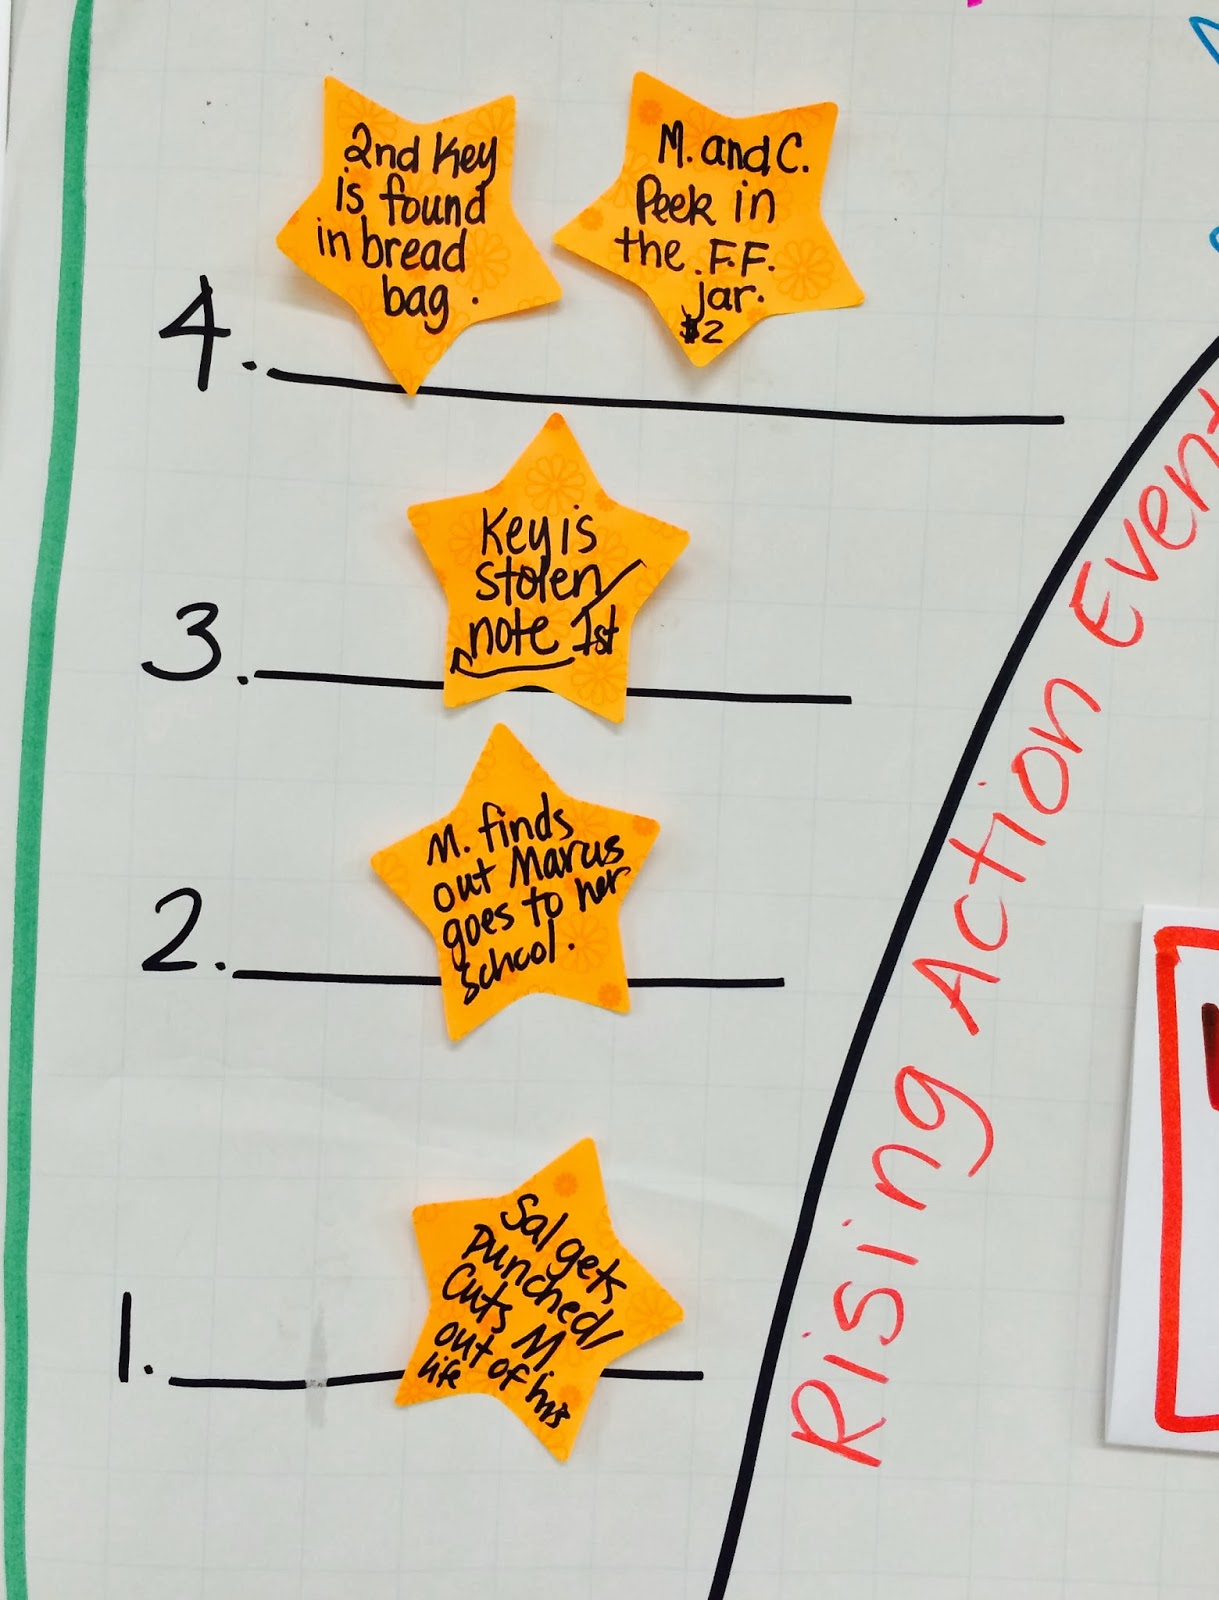 4.
2nd Key
is found
in bread
bag.
M. and C.
Peek in
the F.F.
jar.
$2
3.
Key is
stolen/
note 1st
2.
M. finds
out Marus
goes to her
school.
1.
Sal gets
punched/
Cuts M.
out of his
life
Rising Action Event